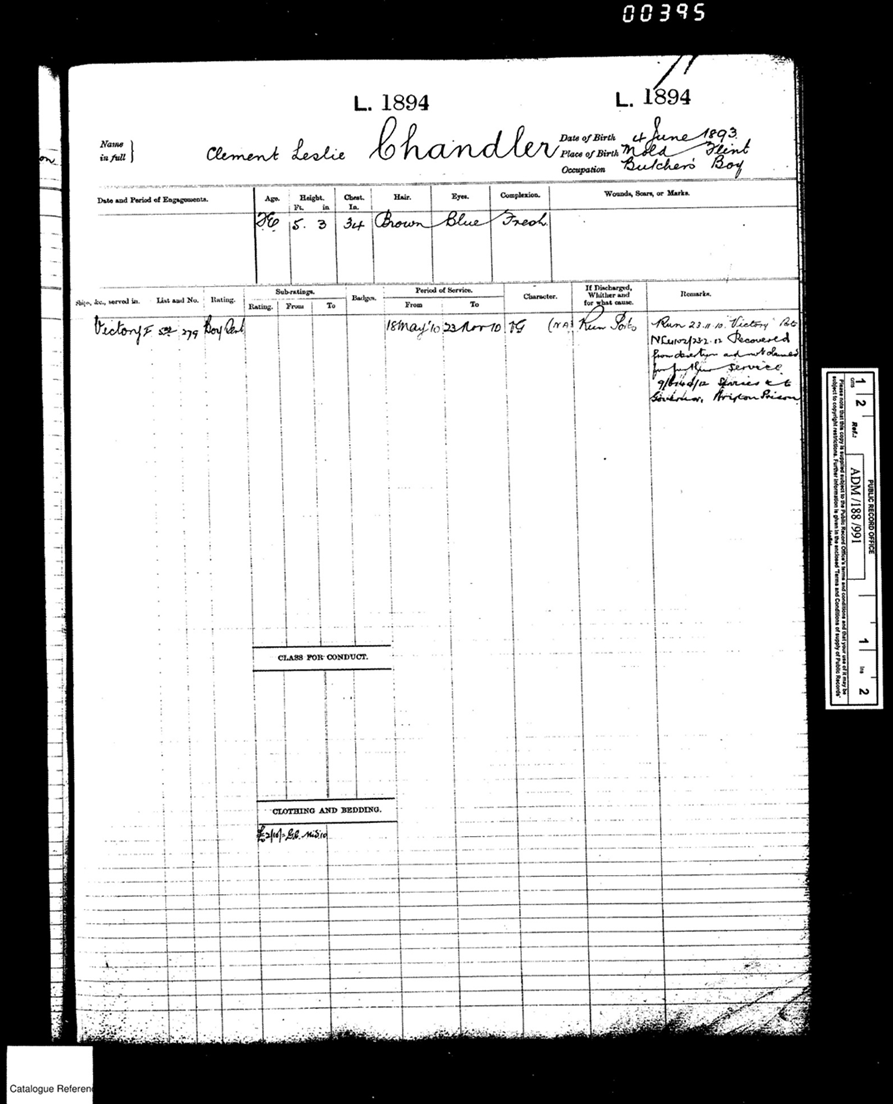 00395
L. 1894
L. 1894
Name in full
Clement Leslie Chandler
Date of Birth 4 June 1893
Place of Birth Mold Flint
Occupation Butcher's Boy
Date and Period of Engagements.
Age.
Height.
Ft. in
Chest.
In.
Hair.
Eyes.
Complexion.
Wounds, Scars, or Marks.
5. 3
34
Brown
Blue
Fresh
Ship, &c., served in.
List and No.
Rating.
Sub-ratings.
Rating.
From
To
Badges.
Period of Service.
From
To
Character.
If Discharged, Whither and for what cause.
Remarks.
Victory
279
Boy
18 May '10
23 Nov 10
VG
(NA)
Run
Run 23.11.10. "Victory"
Recovered
from desertion and not claimed
for further service
Governor, Brixton Prison
CLASS FOR CONDUCT.
CLOTHING AND BEDDING.
1
2
cms
Ref.:
PUBLIC RECORD OFFICE
ADM/188/991
1
ins
2
Please note that this copy is supplied subject to the Public Record Office's terms and conditions and that your use of it may be
subject to copyright restrictions. Further information is given in the enclosed 'Terms and Conditions of supply of Public Records'
leaflet
Catalogue Referen